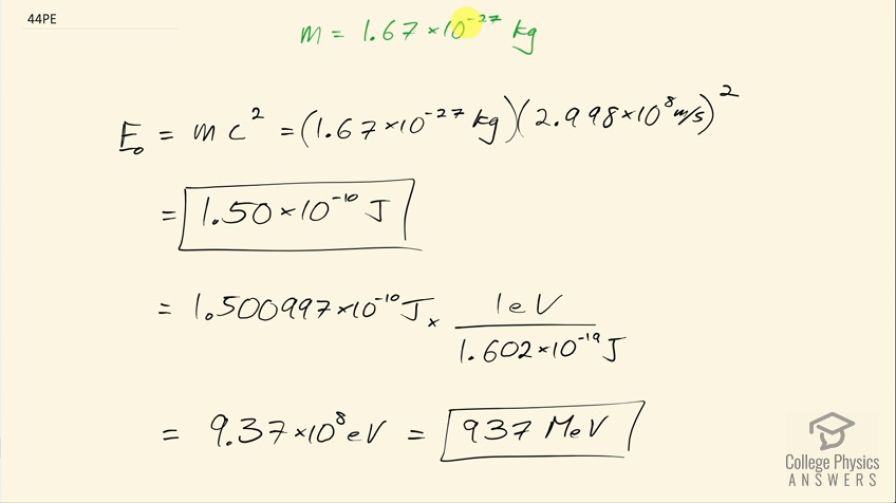 44PE
m = 1.67 × 10⁻²⁷ kg
E₀ = m c² = (1.67 × 10⁻²⁷ kg)(2.998 × 10⁸ m/s)²
= 1.50 × 10⁻¹⁰ J
= 1.500997 × 10⁻¹⁰ J × 1 eV / 1.602 × 10⁻¹⁹ J
= 9.37 × 10⁸ eV = 937 MeV
College Physics
ANSWERS